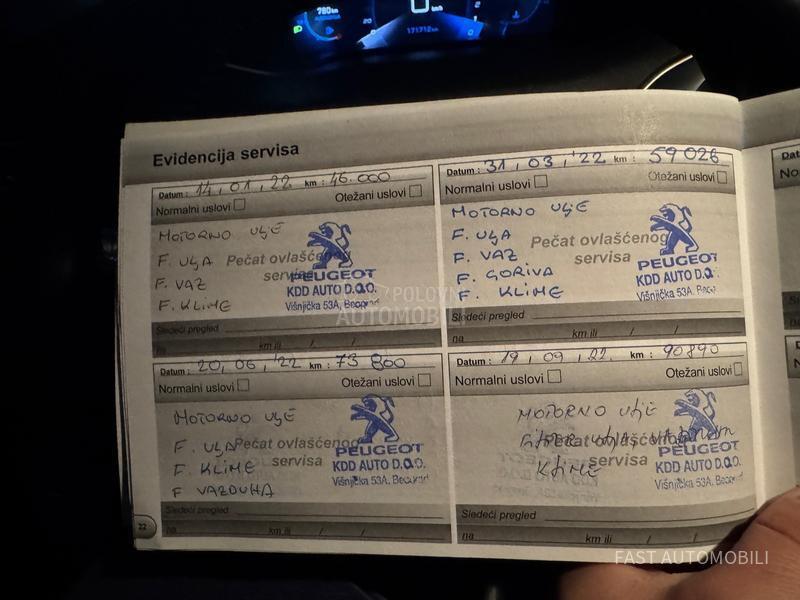 780 km
171712 km
Evidencija servisa
Datum : 14, 01, 22 km : 46.000
Normalni uslovi Otežani uslovi
MOTORNO ULJE
F. ULJA
F. VAZ
F. KLIME
Pečat ovlašćenog
servisa
PEUGEOT
KDD AUTO D.O.O.
Višnjička 53A, Beograd
Sledeći pregled
na km ili / /
Datum : 31, 03, '22 km : 59026
Normalni uslovi Otežani uslovi
MOTORNO ULJE
F. ULJA
F. VAZ
F. GORIVA
F. KLIME
Pečat ovlašćenog
servisa
PEUGEOT
KDD AUTO D.O.O.
Višnjička 53A, Beograd
Sledeći pregled
na km ili / /
Datum : 20, 06, '22 km : 73 800
Normalni uslovi Otežani uslovi
MOTORNO ULJE
F. ULJA
F. KLIME
F VAZDUHA
Pečat ovlašćenog
servisa
PEUGEOT
KDD AUTO D.O.O.
Višnjička 53A, Beograd
Sledeći pregled
na km ili / /
Datum : 19, 09, 22. km : 90890
Normalni uslovi Otežani uslovi
MOTORNO ULJE
FILTER ULJA
KLIME
Pečat ovlašćenog
servisa
PEUGEOT
KDD AUTO D.O.O.
Višnjička 53A, Beograd
Sledeći pregled
na km ili / /
22
POLOVNI
AUTOMOBILI
FAST AUTOMOBILI